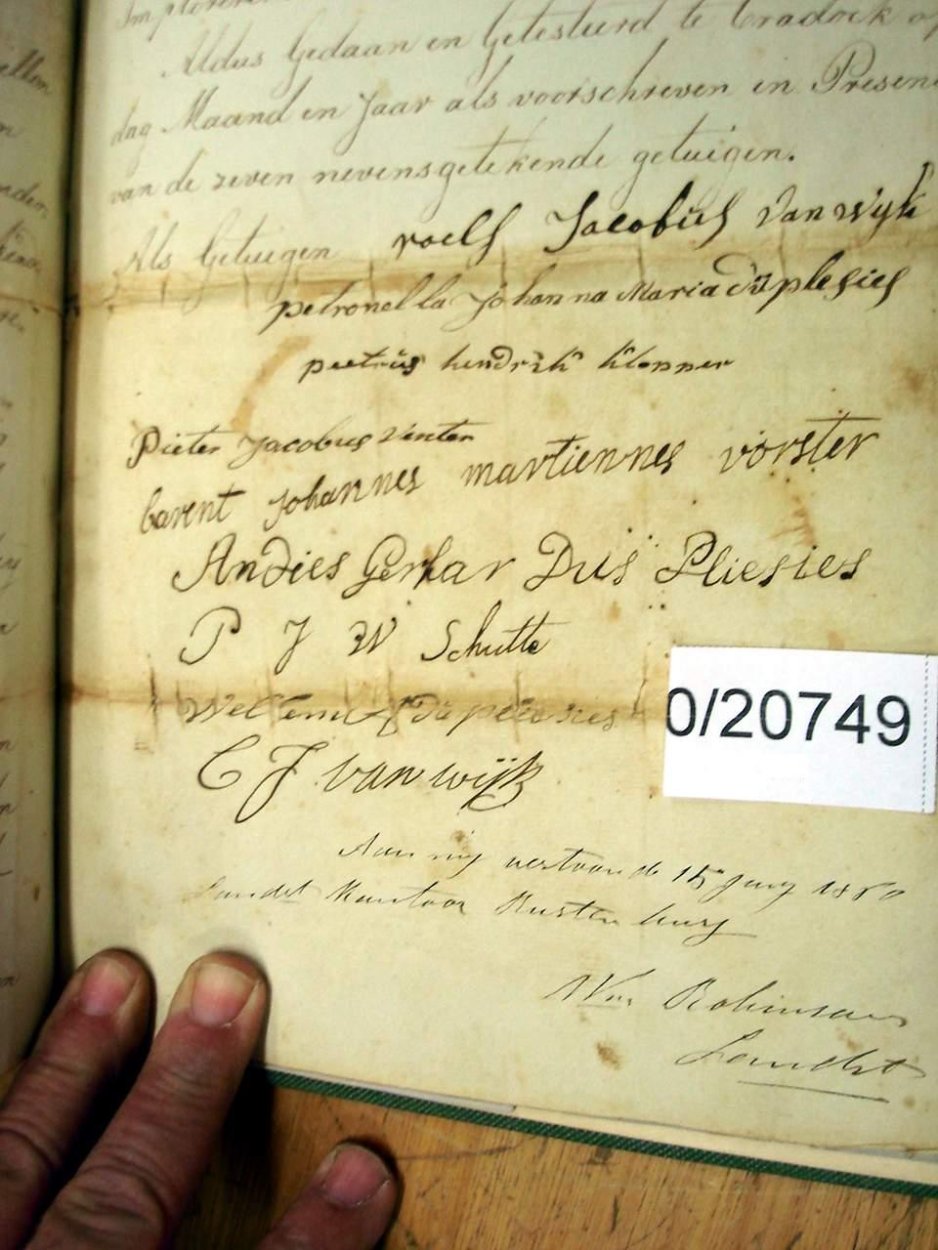 Aldus Gedaan en Getesteerd te Cradock op
dag Maand en Jaar als voorschreven in Presen
van de zeven nevensgetekende getuigen.
Als Getuigen roelf Jacobus van wijk
petronella Johanna Maria dü plesies
peetrüs hendrik klopper
Pieter Jacobus Venter
barent Johannes martiennes vorster
Andies Gerhar Düs Pliesies
P J W Schutte
0/20749
C J van wijk
Aan mij vertoond 15 Juny 18
Landdt Kantoor Rustenburg
Wm Robinson
Landdt